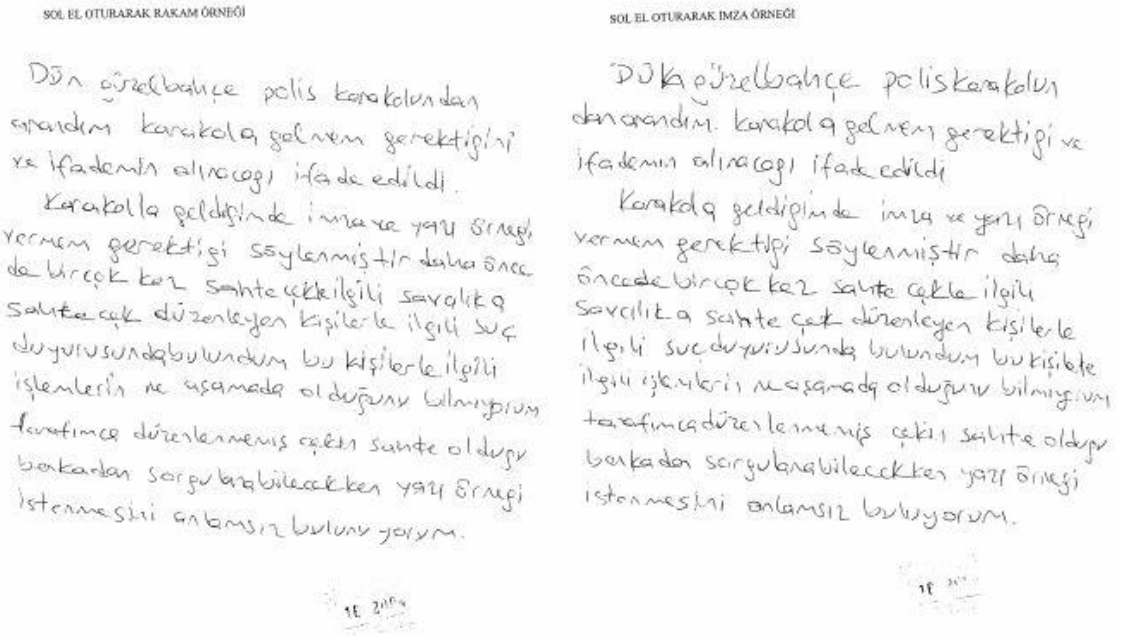 SOL EL OTURARAK RAKAM ÖRNEĞİ
Dün güzelbahçe polis karakolundan
arandım karakola gelmem gerektiğini
ve ifademin alınacagı ifade edildi.
Karakolla geldiğimde imza ve yazı örneği
vermem gerektigi söylenmiştir daha önce
de birçok kez sahte çekle ilgili savcılıka
sahte çek düzenleyen kişilerle ilgili suç
duyurusunda bulundum bu kişilerle ilgili
işlemlerin ne aşamada olduğunu bilmiyorum
tarafımca düzenlenmemiş çekin sahte oldugu
bankadan sorgulanabilecekken yazı örnegi
istenmesini anlamsız bulunuyorum.
SOL EL OTURARAK İMZA ÖRNEĞİ
güzelbahçe polis karakolun
dan arandım. karakola gelmem gerektigi ve
ifademin alınacagı ifade edildi
Karakola geldigimde imza ve yazı örnegi
vermem gerektigi söylenmiştir daha
öncede birçok kez sahte çekle ilgili
savcılıka sahte çek düzenleyen kişilerle
ilgili suç duyurusunda bulundum bu kişilerle
ilgili işlemlerin ne aşamada olduğunu bilmiyorum
tarafımca düzenlenmemiş çekin sahte oldugu
bankadan sorgulanabilecekken yazı örnegi
istenmesini anlamsız buluyorum.